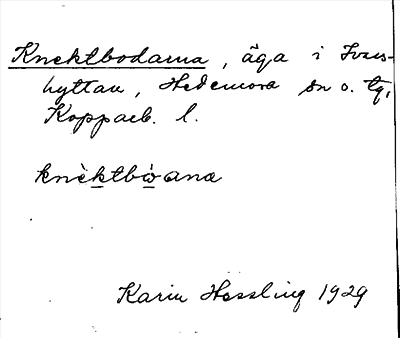 Knektbodarna, äga i Ivars-
hyttan, Hedemora sn o. tg,
Kopparb. l.
knèktbò̱ana
Karin Hessling 1929